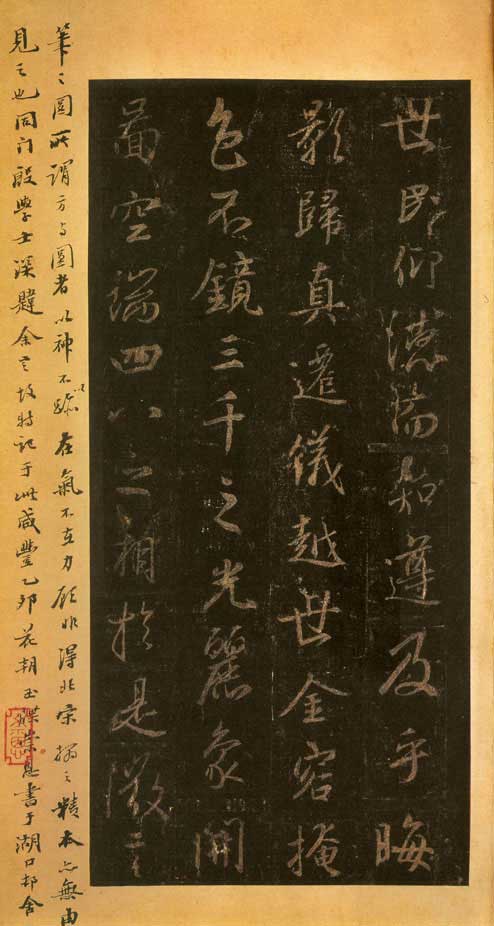 世民仰德而知遵及乎晦
影歸真遷儀越世金容掩
色不鏡三千之光麗象開
圖空端四八之相於是微言
筆之圓所謂方与圓者以神不以跡在氣不在力顧非得北宋搨之精本亦無由
見之也同門殷學士深韙余言故特記于此咸豐乙卯花朝玉牒崇恩書于湖口邨舍